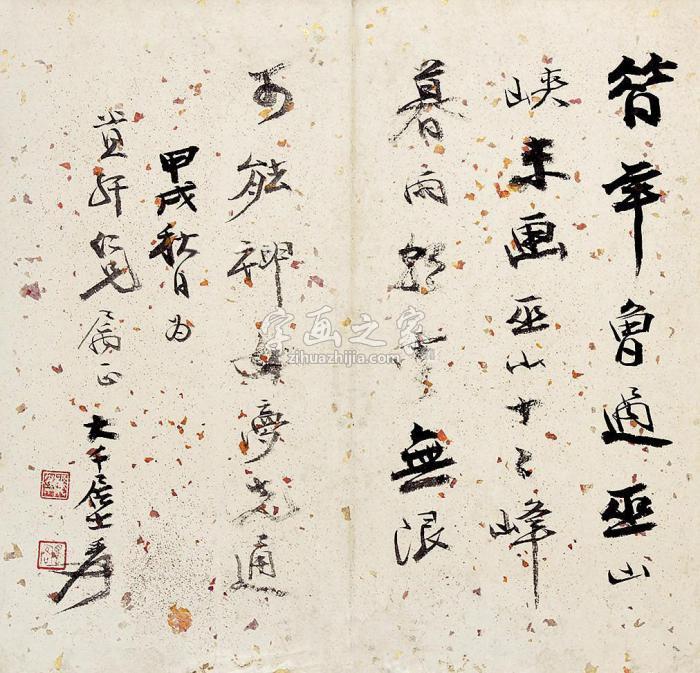 昔年曾過巫山
峽未画巫山十二峰
暮雨朝雲無限
可能神女夢先通
甲戌秋日為
軒仁兄属正
大千居士爰
字画之家
zihuazhijia.com